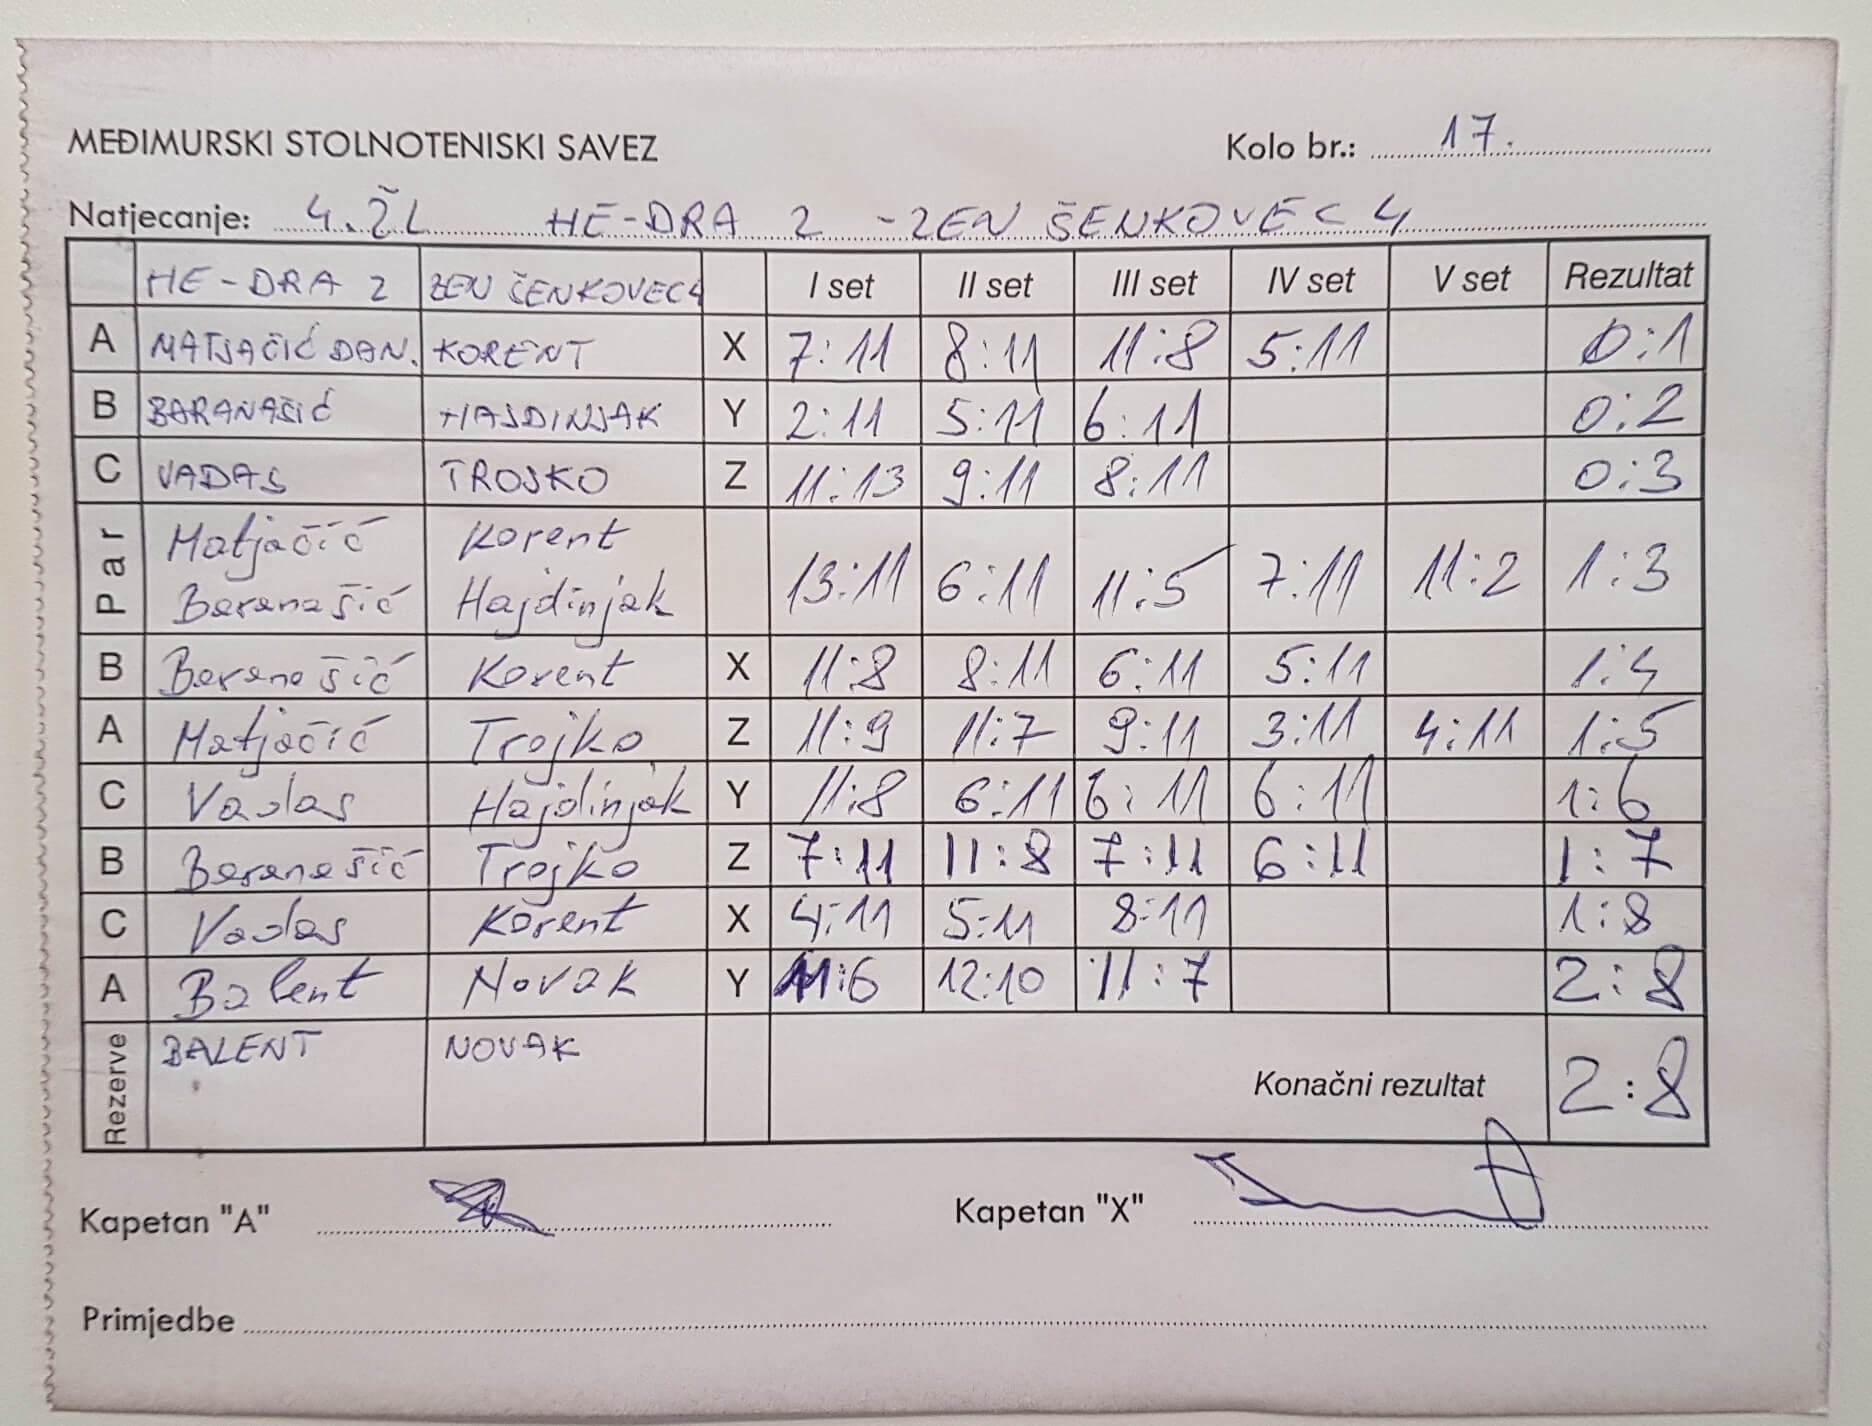 MEĐIMURSKI STOLNOTENISKI SAVEZ Kolo br.: 17.
Natjecanje: 4. ŽL HE-DRA 2 - ZEN ŠENKOVEC 4
HE-DRA 2 ZEN ŠENKOVEC 4 I set II set III set IV set V set Rezultat
A MATJAČIĆ DAN. KORENT X 7:11 8:11 11:8 5:11 0:1
B BARANAŠIĆ HAJDINJAK Y 2:11 5:11 6:11 0:2
C VADAS TROJKO Z 11:13 9:11 8:11 0:3
Par Matjačić Korent
Baranašić Hajdinjak 13:11 6:11 11:5 7:11 11:2 1:3
B Baranašić Korent X 11:8 8:11 6:11 5:11 1:4
A Matjačić Trojko Z 11:9 11:7 9:11 3:11 4:11 1:5
C Vadas Hajdinjak Y 11:8 6:11 6:11 6:11 1:6
B Baranašić Trojko Z 7:11 11:8 7:11 6:11 1:7
C Vadas Korent X 4:11 5:11 8:11 1:8
A Balent Novak Y 11:6 12:10 11:7 2:8
Rezerve BALENT NOVAK
Konačni rezultat 2:8
Kapetan "A" Kapetan "X"
Primjedbe